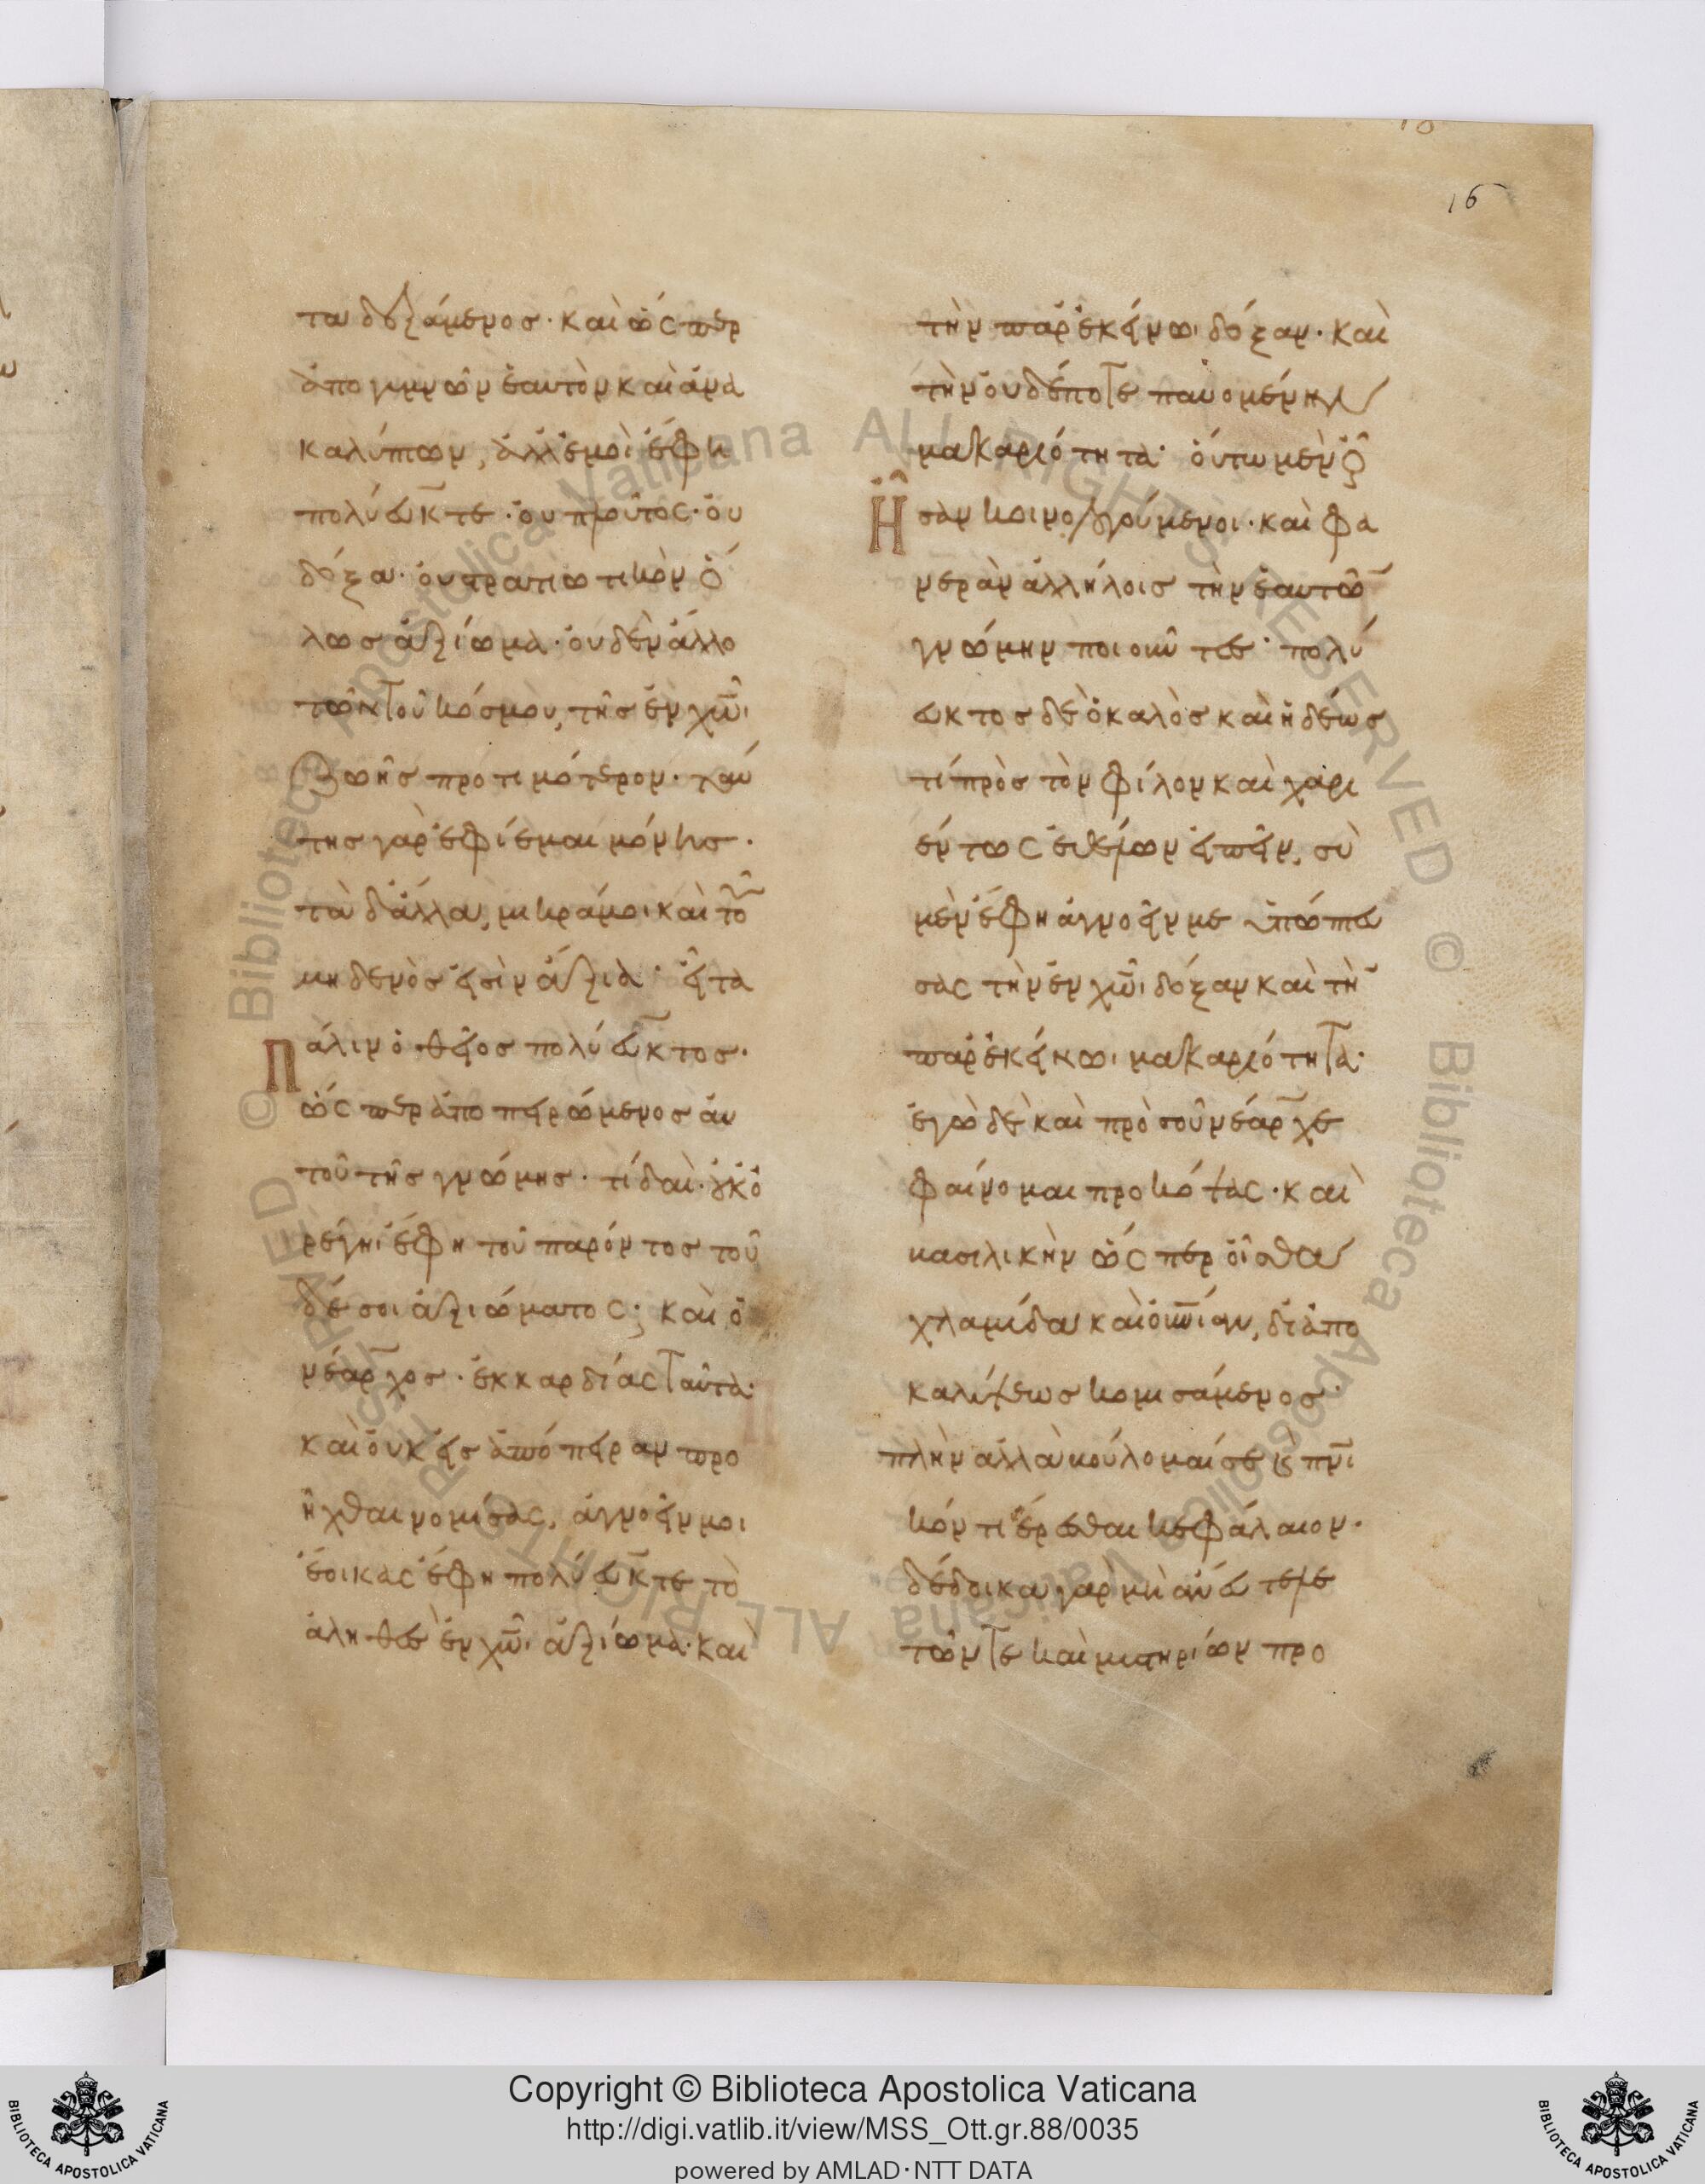 16
τα δεξάμενος· καὶ ὥσπερ
ἀπογυμνῶν ἑαυτὸν καὶ ἀνα
καλύπτων, ἀλλ' ἐμοὶ ἔφη
πολύευκτε· οὐ πλοῦτος· οὐ
δόξα· οὐ στρατιωτικὸν ὅ
λως ἀξίωμα· οὐδὲν ἄλλο
τῶν τοῦ κόσμου, τῆς ἐν χῶι
ζωῆς προτιμότερον· ταύ
της γὰρ ἐφίεμαι μόνης·
τὰ δ' ἄλλα, μικρά μοι καὶ τὸ
μηδενὸς εἰσὶν ἄξια· εἶτα
Πάλιν ὁ θεῖος πολύευκτος·
ὥσπερ ἀποπειρώμενος αὐ
τοῦ τῆς γνώμης· τί δαὶ· οὐκ ὀ
ρέγηι ἔφη τοῦ παρόντος τοῦ
δέ σοι ἀξιώματος; καὶ ὁ
νέαρχος· ἐκ καρδίας ταῦτα·
καὶ οὐκ εἰς ἀπόπειραν προ
ῆχθαι νομίσας, ἀγνοεῖν μοι
ἔοικας ἔφη πολύευκτε τὸ
ἀληθὲς ἐν χῶι ἀξίωμα· καὶ
τὴν παρ' ἐκείνωι δόξαν· καὶ
τὴν οὐδέποτε παυομένην
μακαριότητα· οὕτω μὲν οὖ
Ἦσαν κοινολογούμενοι· καὶ φα
νερὰν ἀλλήλοις τὴν ἑαυτῶ
γνώμην ποιοῦντες· πολύ
ευκτος δὲ ὁ καλὸς καὶ ἡδέως
τί πρὸς τὸν φίλον καὶ χαρι
έντως ἐπιθέμενων εἰπεῖν, σὺ
μὲν ἔφη ἀγνοεῖν με ὑπώπτευ
σας τὴν ἐν χῶι δόξαν καὶ τὴ
παρ' ἐκείνωι μακαριότητα·
ἐγὼ δὲ καὶ πρὸ σοῦ νέαρχε
φαίνομαι προκόψας· καὶ
βασιλικὴν ὥσπερ οἶσθα
χλαμύδα καὶ οὐνίαν, δι' ἀπο
καλύψεως κομισάμενος·
πλὴν ἀλλὰ βούλομαί σε εἰς πνι
κόν τι ἔρεσθαι κεφάλαιον·
δέδοικα γὰρ μὴ ἄνευ τελε
τῶν τε καὶ μυστηρίων προ
Copyright © Biblioteca Apostolica Vaticana
http://digi.vatlib.it/view/MSS_Ott.gr.88/0035
powered by AMLAD·NTT DATA
BIBLIOTECA APOSTOLICA VATICANA
BIBLIOTECA APOSTOLICA VATICANA